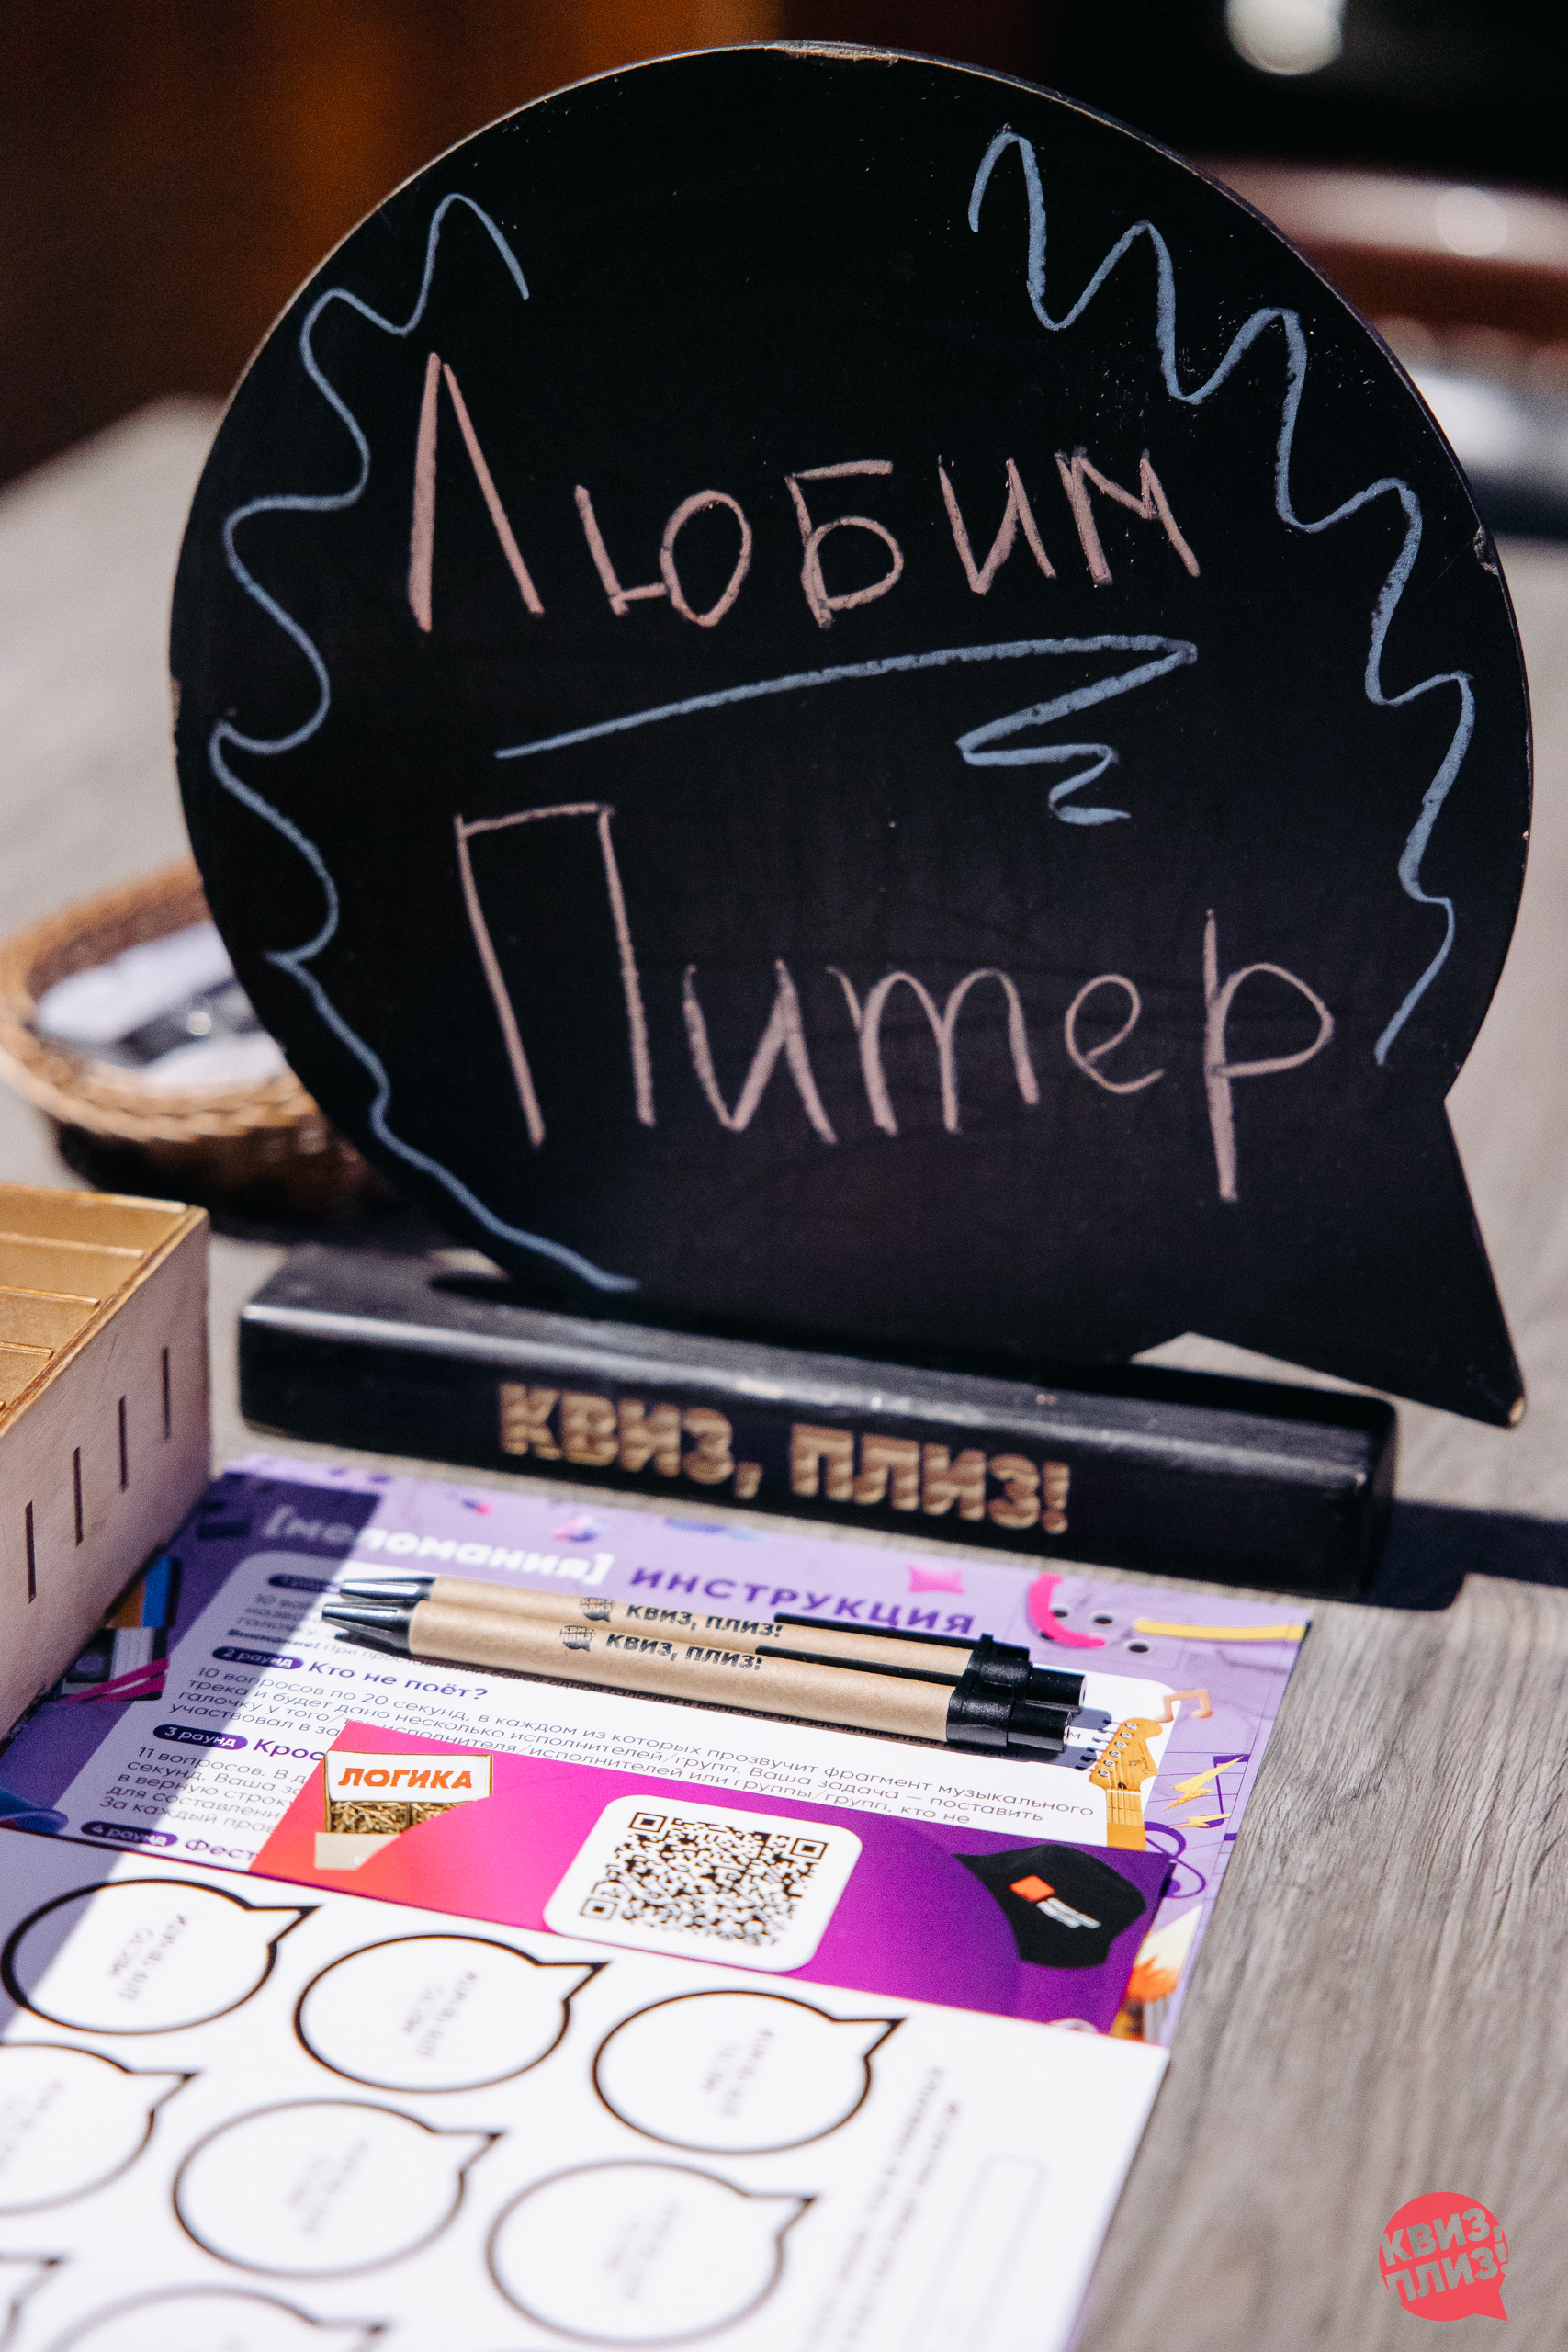 Любим
Питер
КВИЗ, ПЛИЗ!
[меломания] ИНСТРУКЦИЯ
КВИЗ, ПЛИЗ!
КВИЗ, ПЛИЗ!
Внимание! При
2 раунд Кто не поёт?
10 вопросов по 20 секунд, в каждом из которых прозвучит фрагмент музыкального
трека и будет дано несколько исполнителей/групп. Ваша задача — поставить
галочку у того/тех исполнителя/исполнителей или группы/групп, кто не
участвовал в за
3 раунд Крос
11 вопросов. В д
секунд. Ваша за
в верную строк
для составлени
За каждый прав
4 раунд Фест
ЛОГИКА
КВИЗ,
ПЛИЗ!